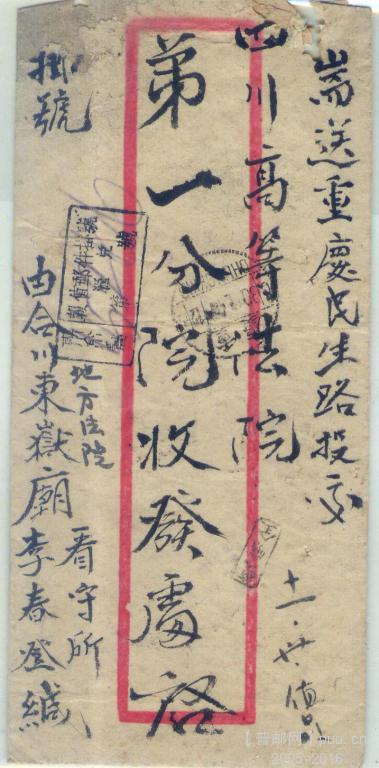 耑送重慶民生路投交
四川高等法院
第一分院收發處啓
掛號
由合川東嶽廟李春登緘
地方法院
看守所
十一·廿
【普邮网】puu.cn
2005-2016